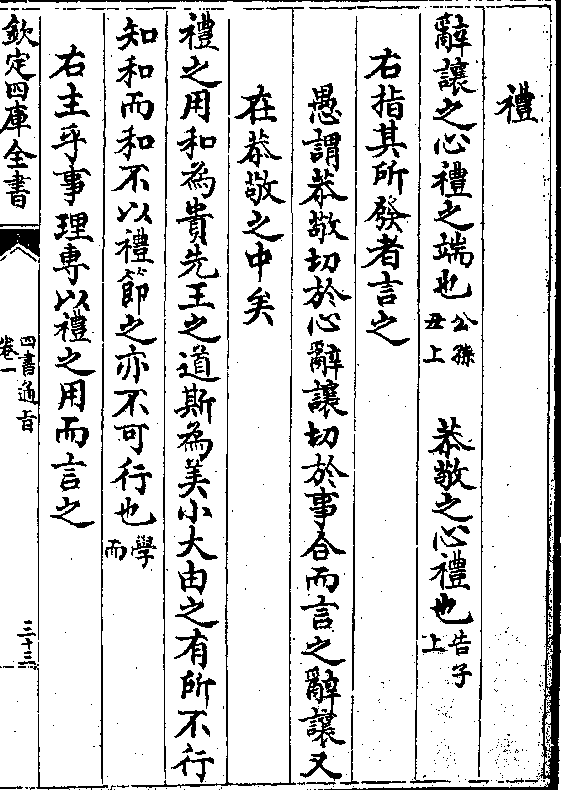 禮
辭讓之心禮之端也公孫丑上 恭敬之心禮也告子上
右指其所發者言之
愚謂恭敬切於心辭讓切於事合而言之辭讓又
在恭敬之中矣
禮之用和為貴先王之道斯為美小大由之有所不行
知和而和不以禮節之亦不可行也學而
右主乎事理專以禮之用而言之
欽定四庫全書
四書通旨
卷一
三十三